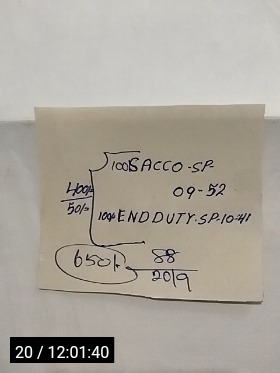 100/SACCO-SP-
09-52
400/=
50/=
100/=ENDDUTY.SP.10:41
650/=
88
2019
20 / 12:01:40